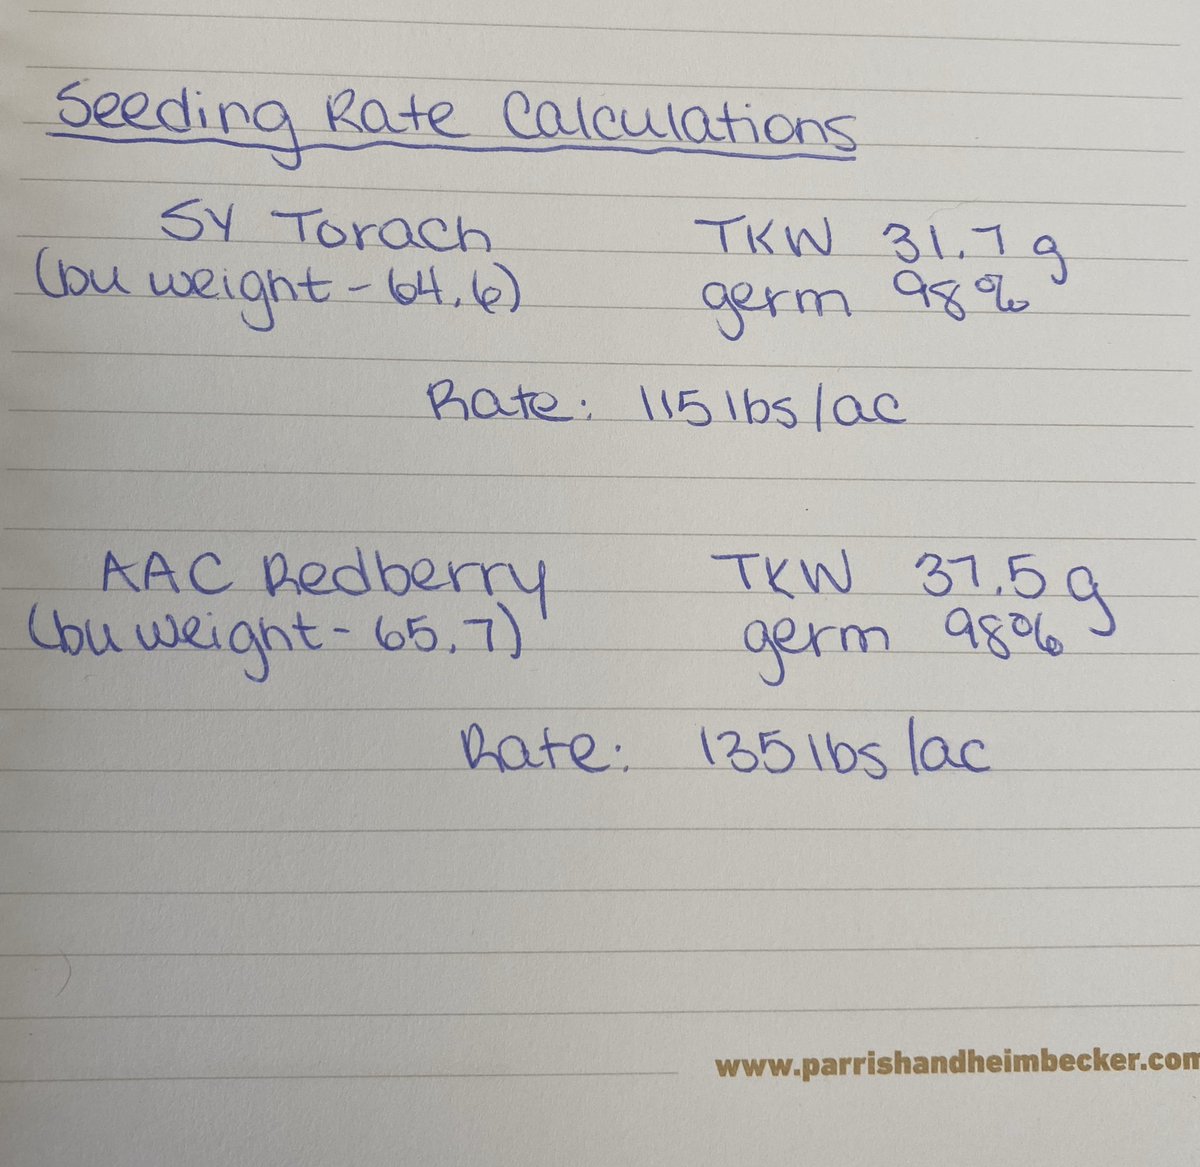 Seeding Rate Calculations
SY Torach TKW 31.7 g
(bu weight - 64.6) germ 98%
Rate: 115 lbs/ac
AAC Redberry TKW 37.5 g
(bu weight - 65.7) germ 98%
Rate: 135 lbs/ac
www.parrishandheimbecker.com